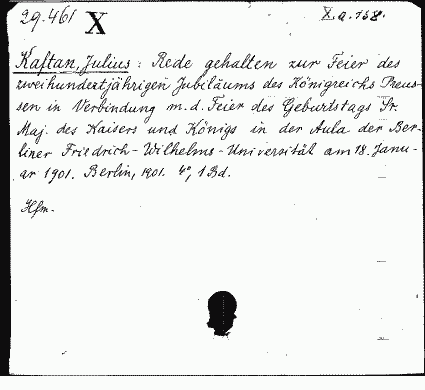 29.461 X X.a.158.
Kaftan, Julius: Rede gehalten zur Feier des
zweihundertjährigen Jubiläums des Königreichs Preus-
sen in Verbindung m. d. Feier des Geburtstags Sr.
Maj. des Kaisers und Königs in der Aula der Ber-
liner Friedrich-Wilhelms-Universität am 18. Janu-
ar 1901. Berlin, 1901. 4°, 1 Bd.
Hfm.